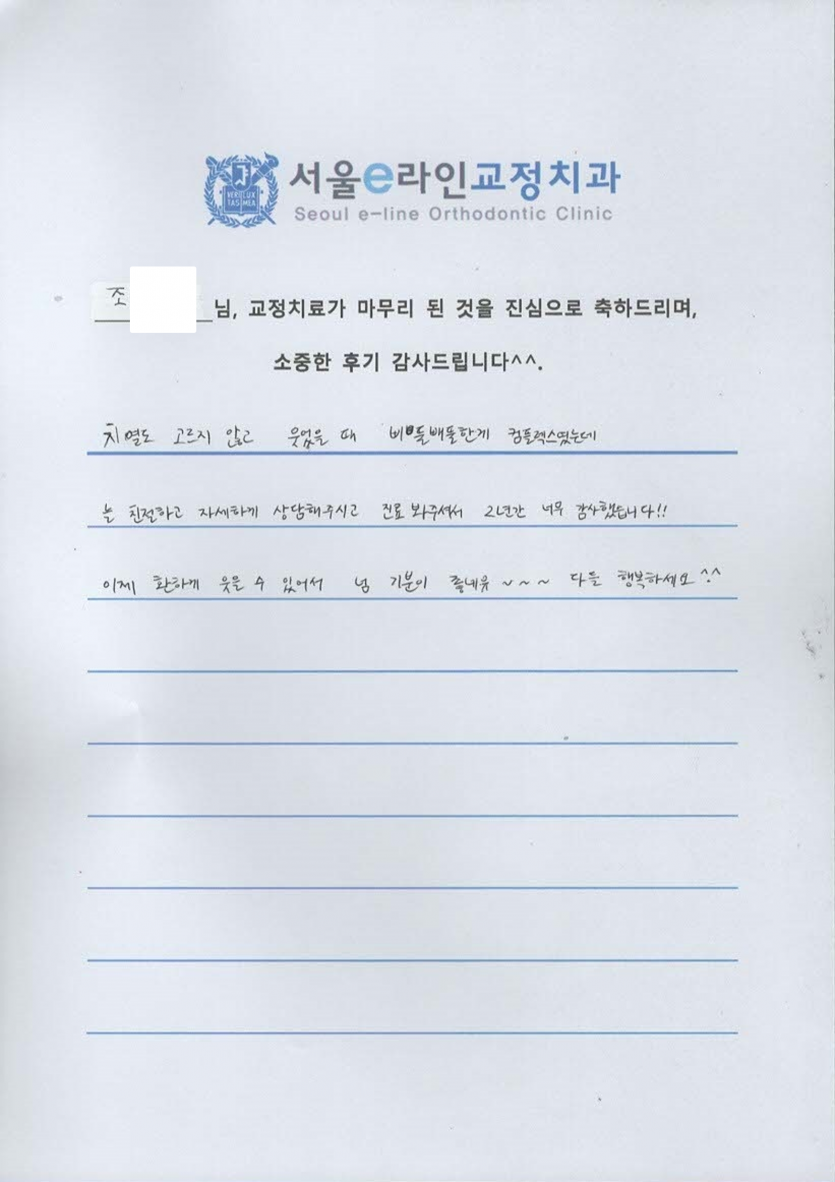 VERI LUX
TAS MEA
서울e라인교정치과
Seoul e-line Orthodontic Clinic
조 님, 교정치료가 마무리 된 것을 진심으로 축하드리며,
소중한 후기 감사드립니다^^.
치열도 고르지 않고 웃었을 때 삐뚤빼뚤한게 컴플렉스였는데
늘 친절하고 자세하게 상담해주시고 진료 봐주셔서 2년간 너무 감사했습니다!!
이제 환하게 웃을 수 있어서 넘 기분이 좋네유 ~ ~ ~ 다들 행복하세요^^